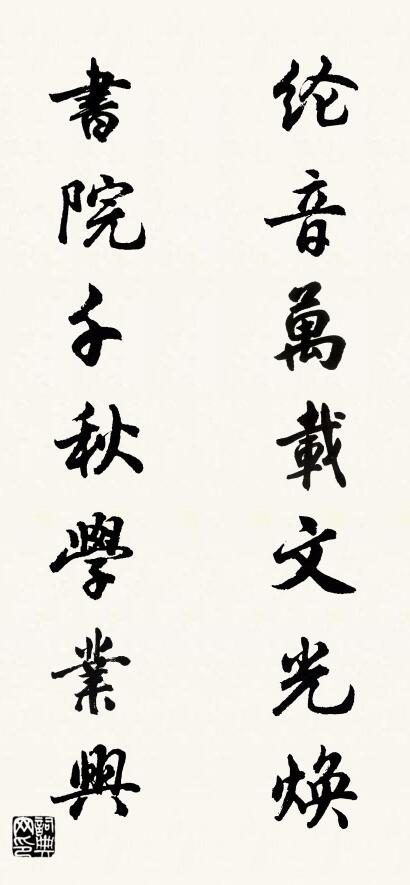 纶音萬載文光焕
書院千秋學業興
詞典网印